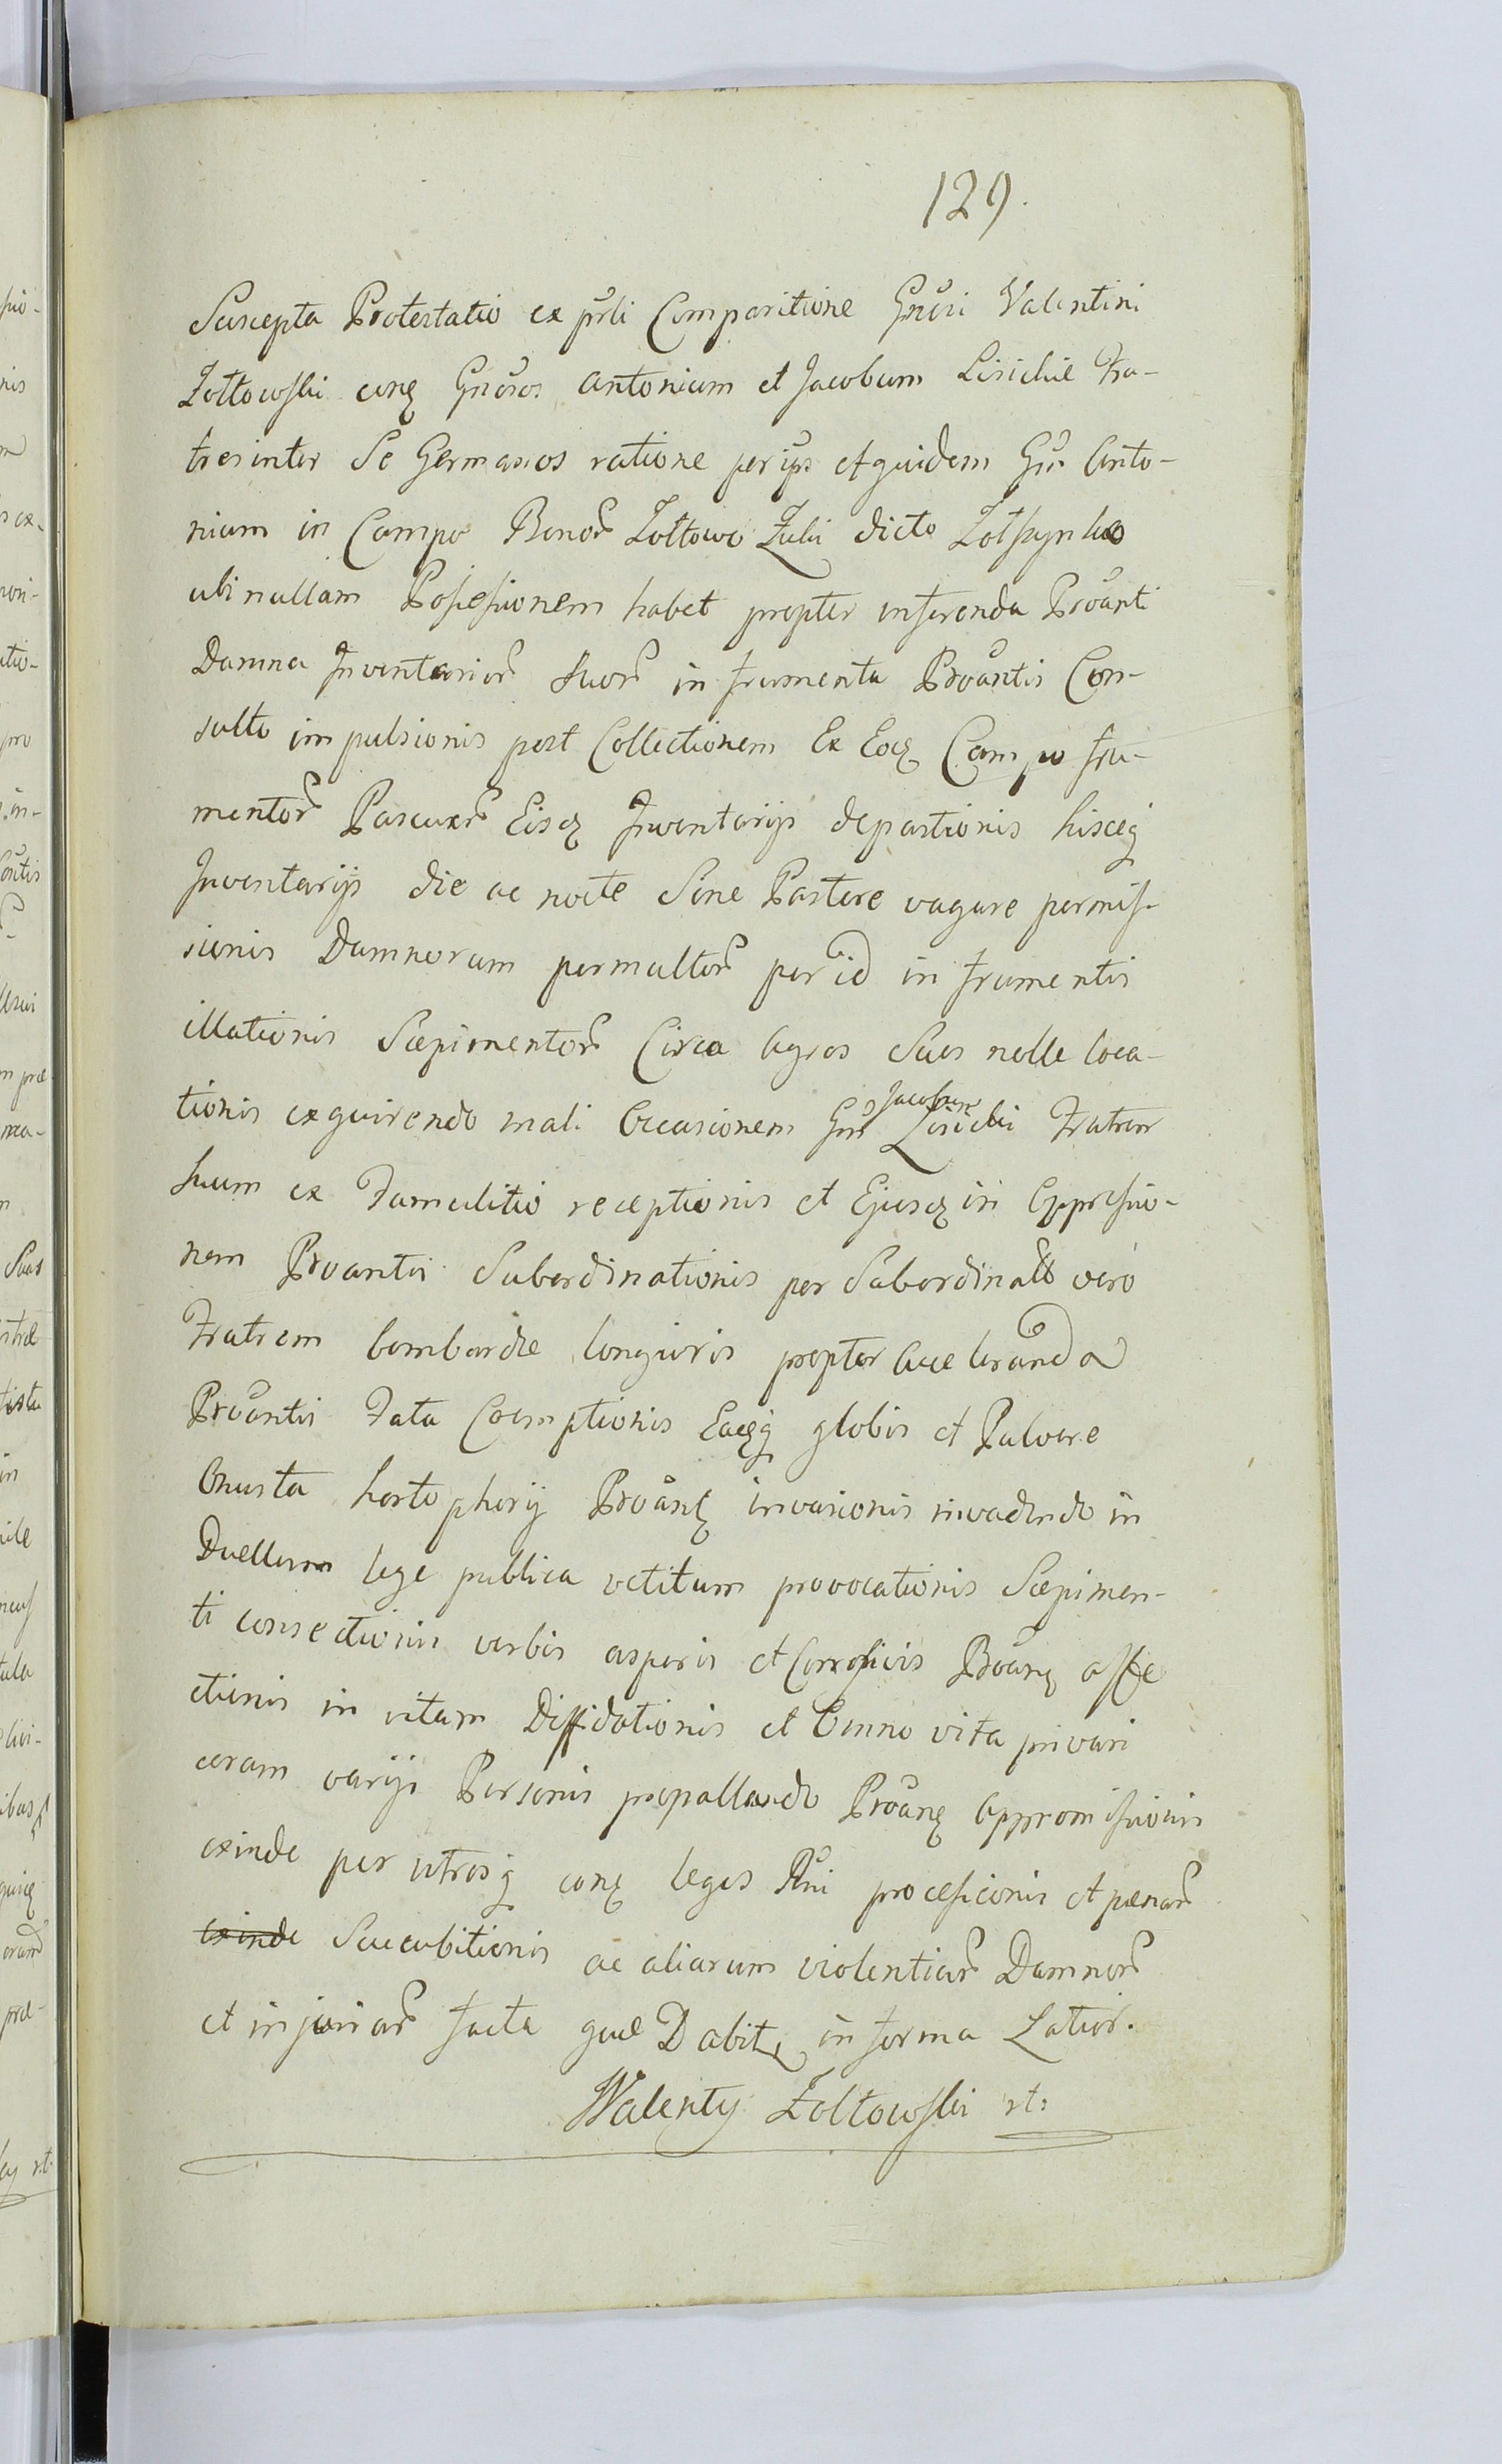 129.
Suscepta Protestatio ex prli Comparitione Gnosi Valentini
Żołtowski cong Gnosos Antonium et Jacobum Lisickie Fra-
tres inter Se Germanos ratione per ips et quidem Gn Anto-
nium in Campo Bonor Żołtowo Żuki dicto
ubi nullam Possessionem habet propter inferenda Proanti
Damna Inventarior suor in frumenta Proantis Con-
sulto impulsionis post Collectionem Ex Eoq Campo fru-
mentor Pascuar Eisq Inventarijs depastionis hisceq
Inventarijs die ac nocte Sine Pastore vagare permis-
sionis Damnorum permultor per id in frumentis
illationis Sæpimentor Circa Agros Suos nolle loca-
tionis exquirendo mali Occasionem Gn Jacobum Lisicki Fratrem
suum ex Famulitio receptionis et Ejusq in Oppressio-
nem Proantis Subordinationis per Subordinatt vero
Fratrem bombardæ longioris propter Acceleranda
Proantis Fata Coemptionis Eaqq globis et Pulvere
Onusta horto phorij Proant invasionis invadendo in
Duellum lege publica vetitum provocationis Sæpimen-
ti consectionis verbis asperis et Corrosivis Proang affe
ctionis in vitam Diffidationis et Omno vita privari
coram varijs Personis propallando Proang Appromissionis
exinde per utrosq cong leges Rni processionis et pænar
exinde Succubitionis ac aliarum violentiar Damnor
et injuriar facta quæ Dabit, in forma Latior.
Walenty Żołtowski rt: